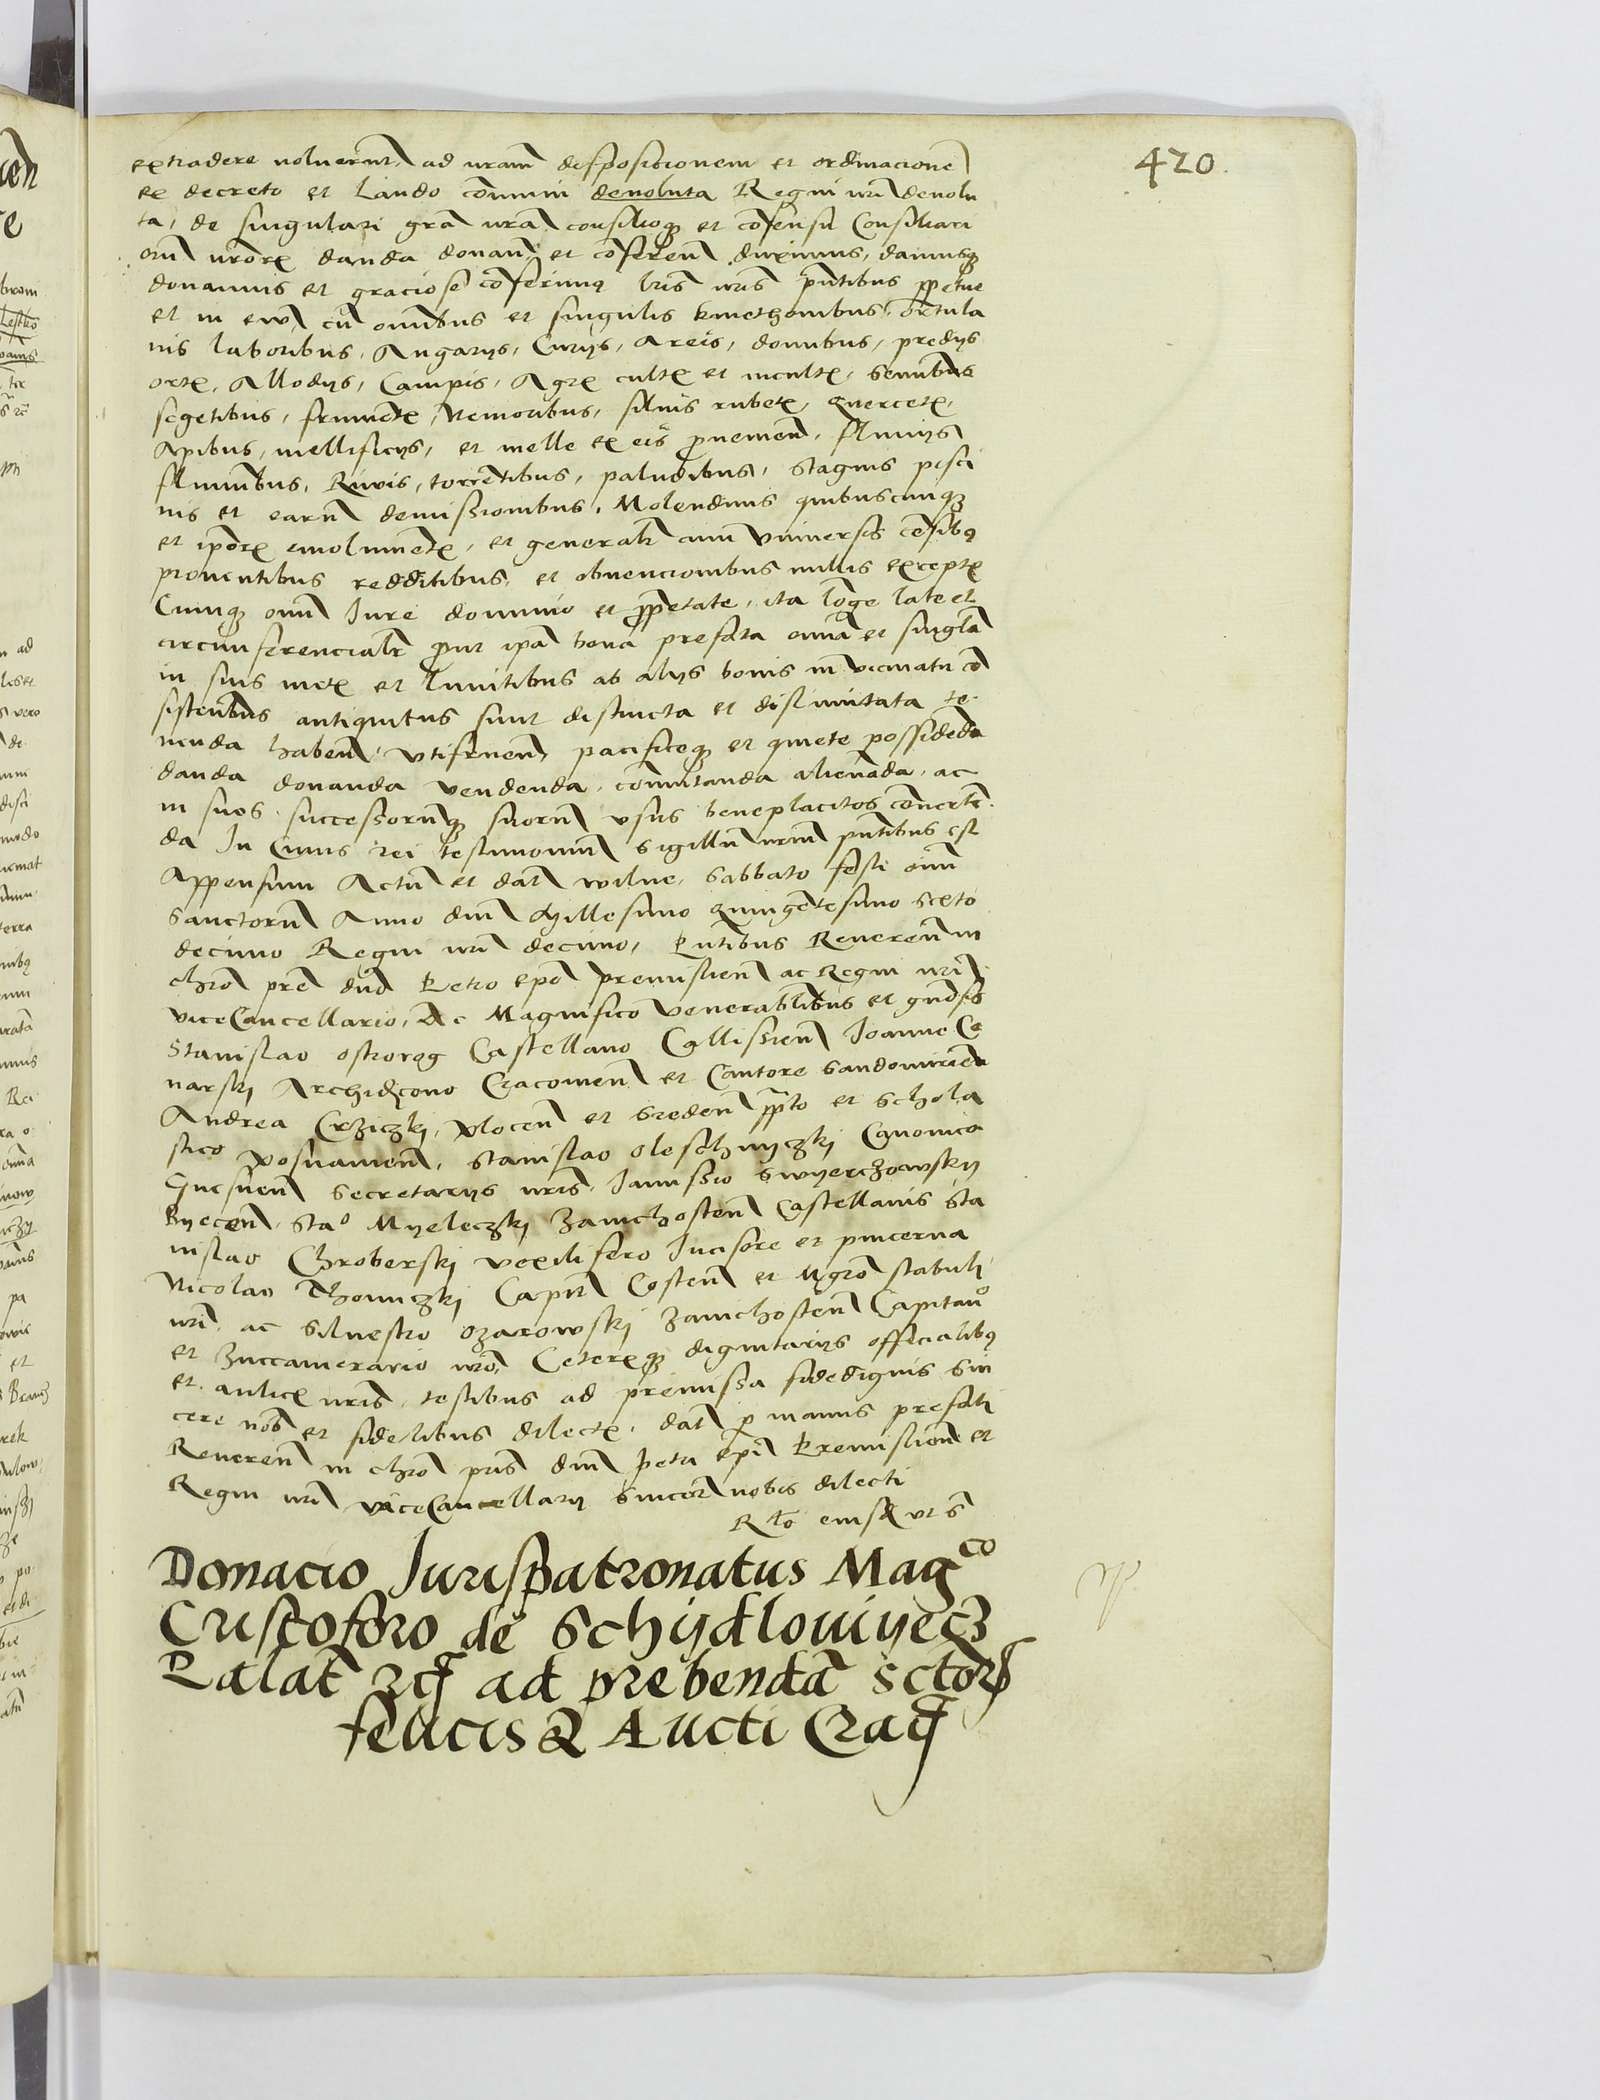 420.
extradere noluerunt, ad nram disposicionem et ordinacione
ex decreto et Laudo comuni denoluta Regni nri deuolu
ta, de singulari gra nra, consilioq et cosensu Consiliari
oru nroru danda donan et coferen duximus, damusq
donamus et graciose coferimq lris nris pntibus ppetue
et in ewu cu omibus et singulis kmethonibus, ortula
nis laboribus, Angarijs, Curijs, Areis, domibus, predijs
ortis, Allodijs, Campis, Agris cultis et incultis, seminibus
segetibus, frumetis, Nemoribus, siluis rubetis, Quercetis,
Apibus, mellificijs, et melle ex eis proueniend, fluuijs
fluminibus, Riuis, torretibus, paludibus, stagnis pisci
nis et earu demissionibus, Molendinis quibuscunq
et iporu emolumetis, et generalr cum vniuersis cesibq
prouentibus redditibus, et obuencionibus nullis exceptis
Cumq omni Jure dominio et ppetate, ita loge late et
circumferencialr prout ipa bona prefata omia et singla
in suis metis et limitibus ab alijs bonis in vicinatu co
sistentibus antiquitus sunt distincta et dislimitata te
nenda haben, vtifruen, pacificeq et quiete possideda
danda donanda vendenda, comutanda alienada, ac
in suos successorumq suoru vsus beneplacitos couerte
da In Cuius rei testimoniu sigillu nrum pntibus est
Appensum Actu et dat wilne, sabbato festi omi
sanctoru Anno dni Millesimo Quingetesimo sexto
decimo Regni nri decimo, Pntibus Reueren in
chro pre dno Petro epo premislien ac Regni nri
viceCancellario, Ac Magnifico venerabilibus et gnosis
Stanislao ostrorog Castellano Callissien Ioanne Co
narskj Archidcono Cracouien et Cantore Sandomirien
Andrea Crziczkj, plocen et sreden ppto et schola
stico posnanien, Stanislao oleschnyczkj Canonico
Gnesnen Secretarijs nris, Janussio Swyerczowskij
Byecen, Stao Myeleczkj Zawichosten Castellanis Sta
nislao Chroberskj vexilifero Incisore et pincerna
Nicolao Thomiczkj Capit Costen et Mgro stabuli
nri, ac Siluestro ozarowskj Zawichosten Capitano
et Zuccamerario nro, Ceterisq dignitarijs officialibq
et aulicis nris, testibus ad premissa fidedignis sin
cere nob et fidelibus dilectis, dat p manus prefati
Reueren in chro pris dni Petri epi Premislien et
Regni nri viceCancellarij sincere nobis dilecti
Rlo eiusd vt S
Donacio Jurispatronatus Magco
Cristoforo de Schydlowyecz
Palat zcˀ ad prebenda sctoru
felicis & Aucti Crac